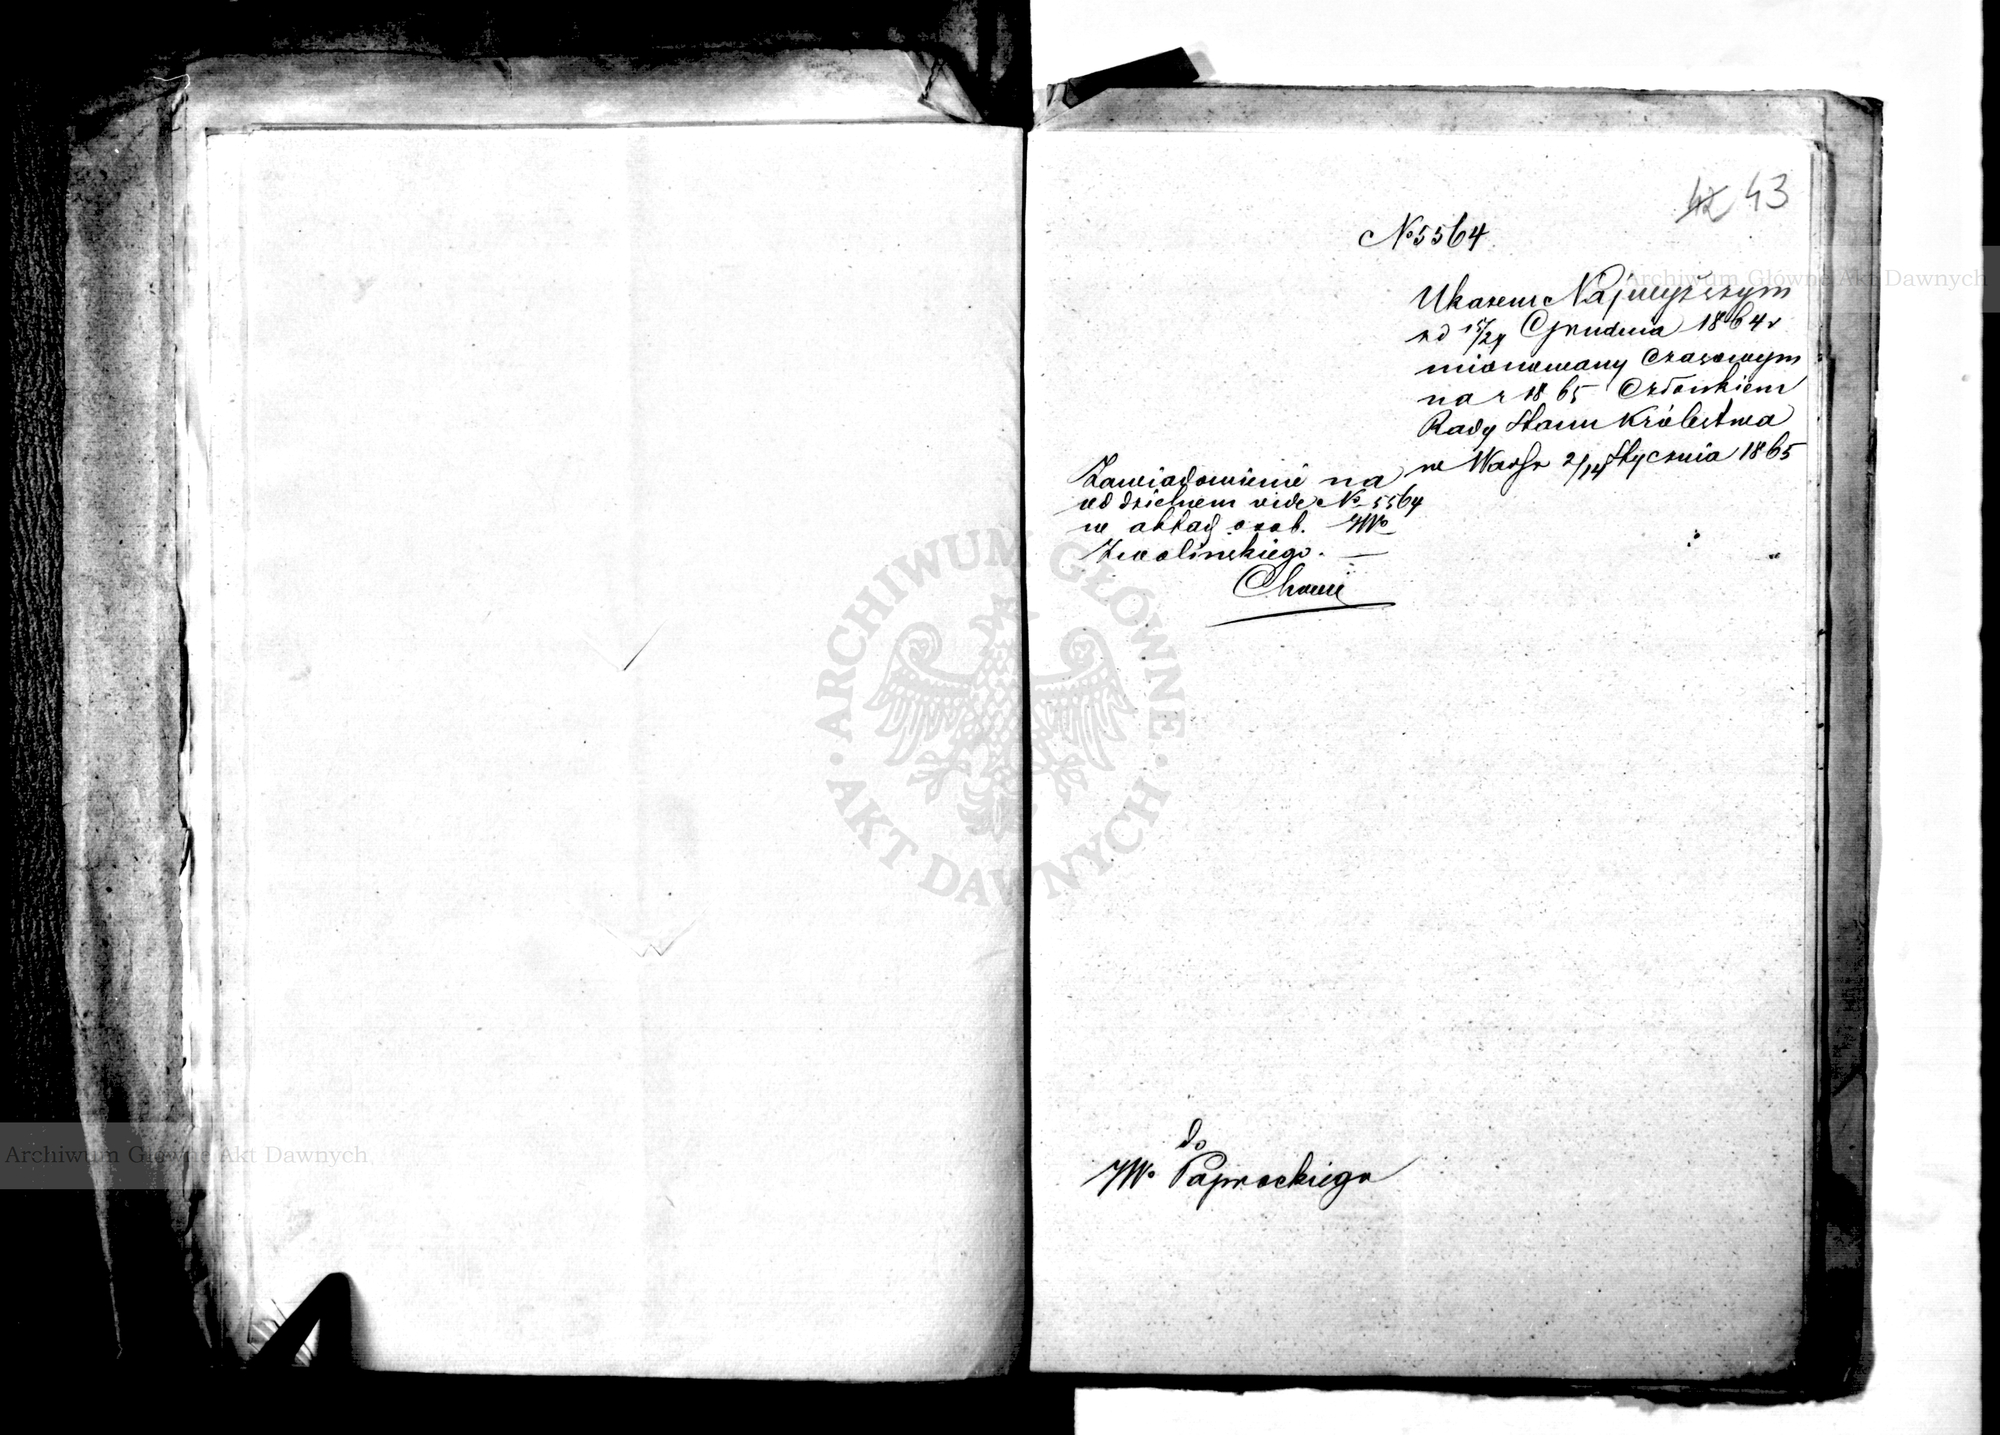 42 43
№ 5564
Ukazem Najwyższym
od 15/27 Grudnia 1864 r
mianowany czasowym
na r 1865 Członkiem
Rady Stanu Królestwa
w Warsz 2/14 Stycznia 1865
Zawiadomienie na
oddzielnem vide № 5564
w aktach osob. JWo
Zwolińskiego. —
do
JWo Paprockiego
Archiwum Główne Akt Dawnych
ARCHIWUM GŁÓWNE
· AKT DAWNYCH ·
Archiwum Główne Akt Dawnych